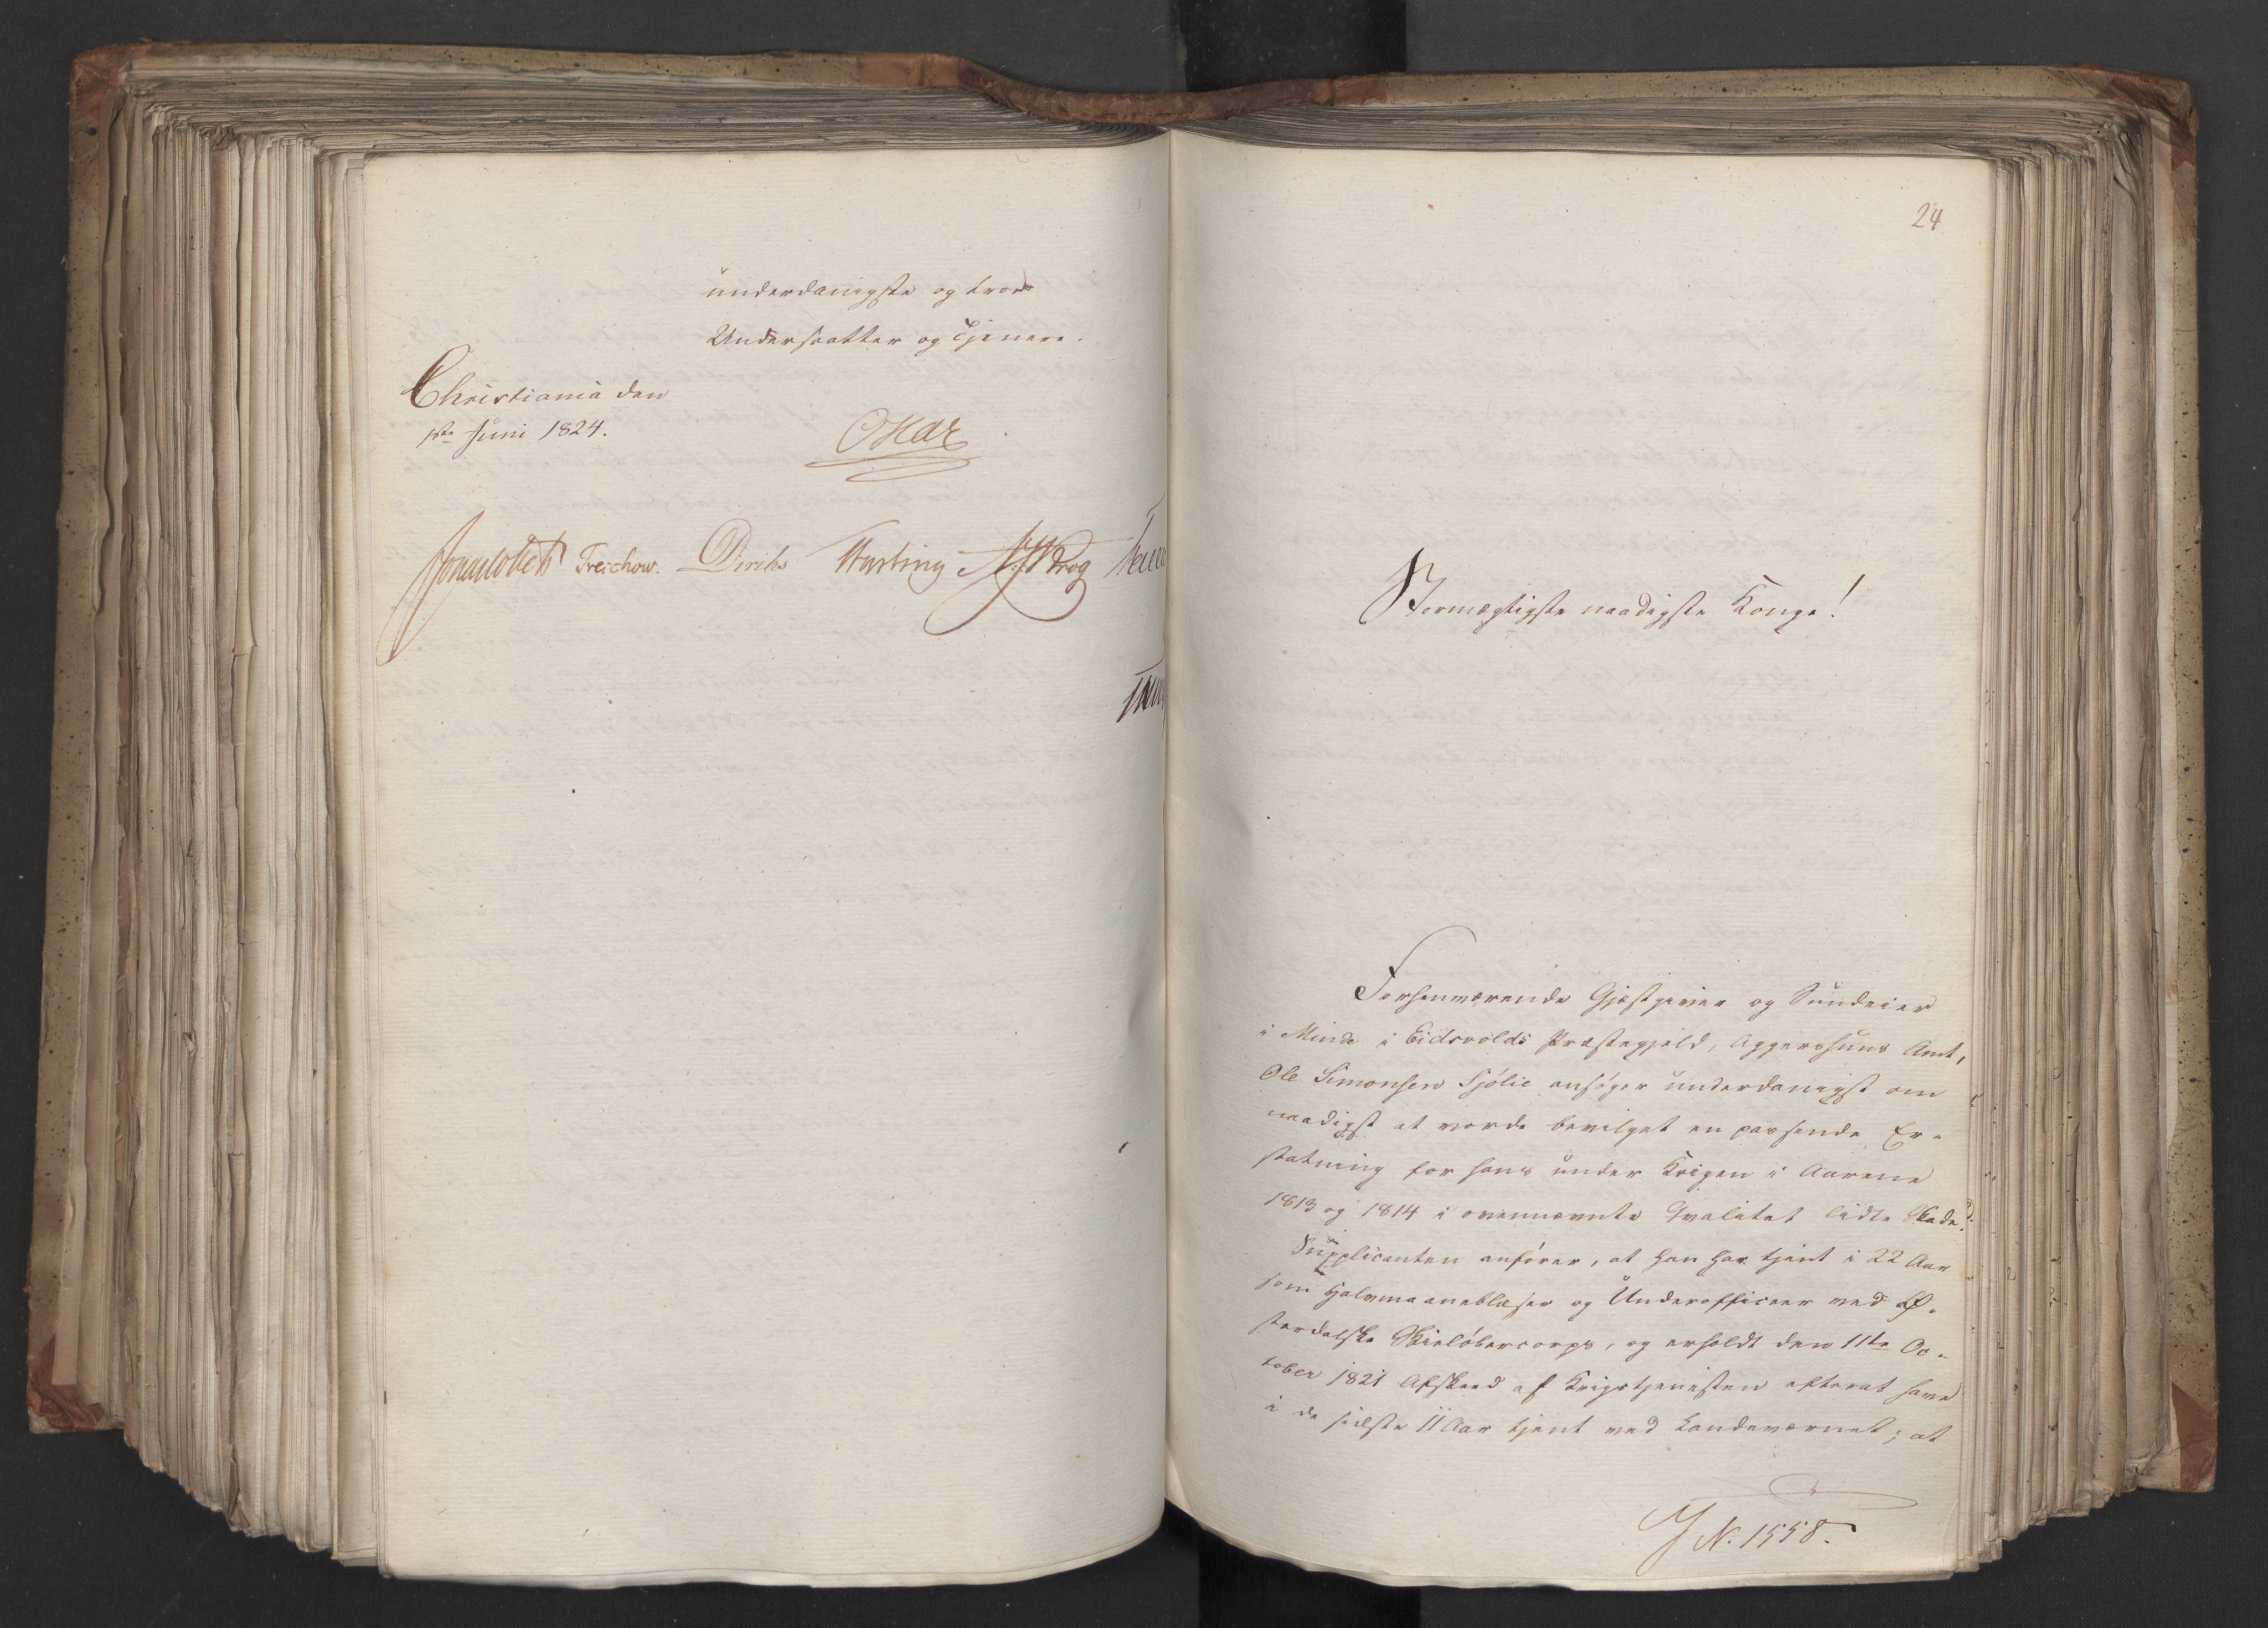 underdanigste og troe
Undersaatter og Tjenere.
Christiania den
1ste Juni 1824.
Oscar
Treschow. Diriks Hasting Krog
24
Stormægtigste naadigste Konge!
Forhenværende Gjæstgiver og Sundeier
i Minde i Eidsvolds Præstegjeld, Aggershuus Amt,
Ole Simonsen Sjölie ansöger underdanigst om
naadigst at vorde bevilget en passende Er-
statning for hans under Krigen i Aarene
1813 og 1814 i ovennævnte Qvalitet lidte Skade.
Supplicanten anförer, at han har tjent i 22 Aar
som Halvmaaneblæser og Underofficeer ved Ö-
sterdalske Skielöbercorps, og erholdt den 11te Oc-
tober 1821 Afskeed af Krigstjenesten efterat have
i de sidste 11 Aar tjent ved Landeværnet; at
J N. 1558.